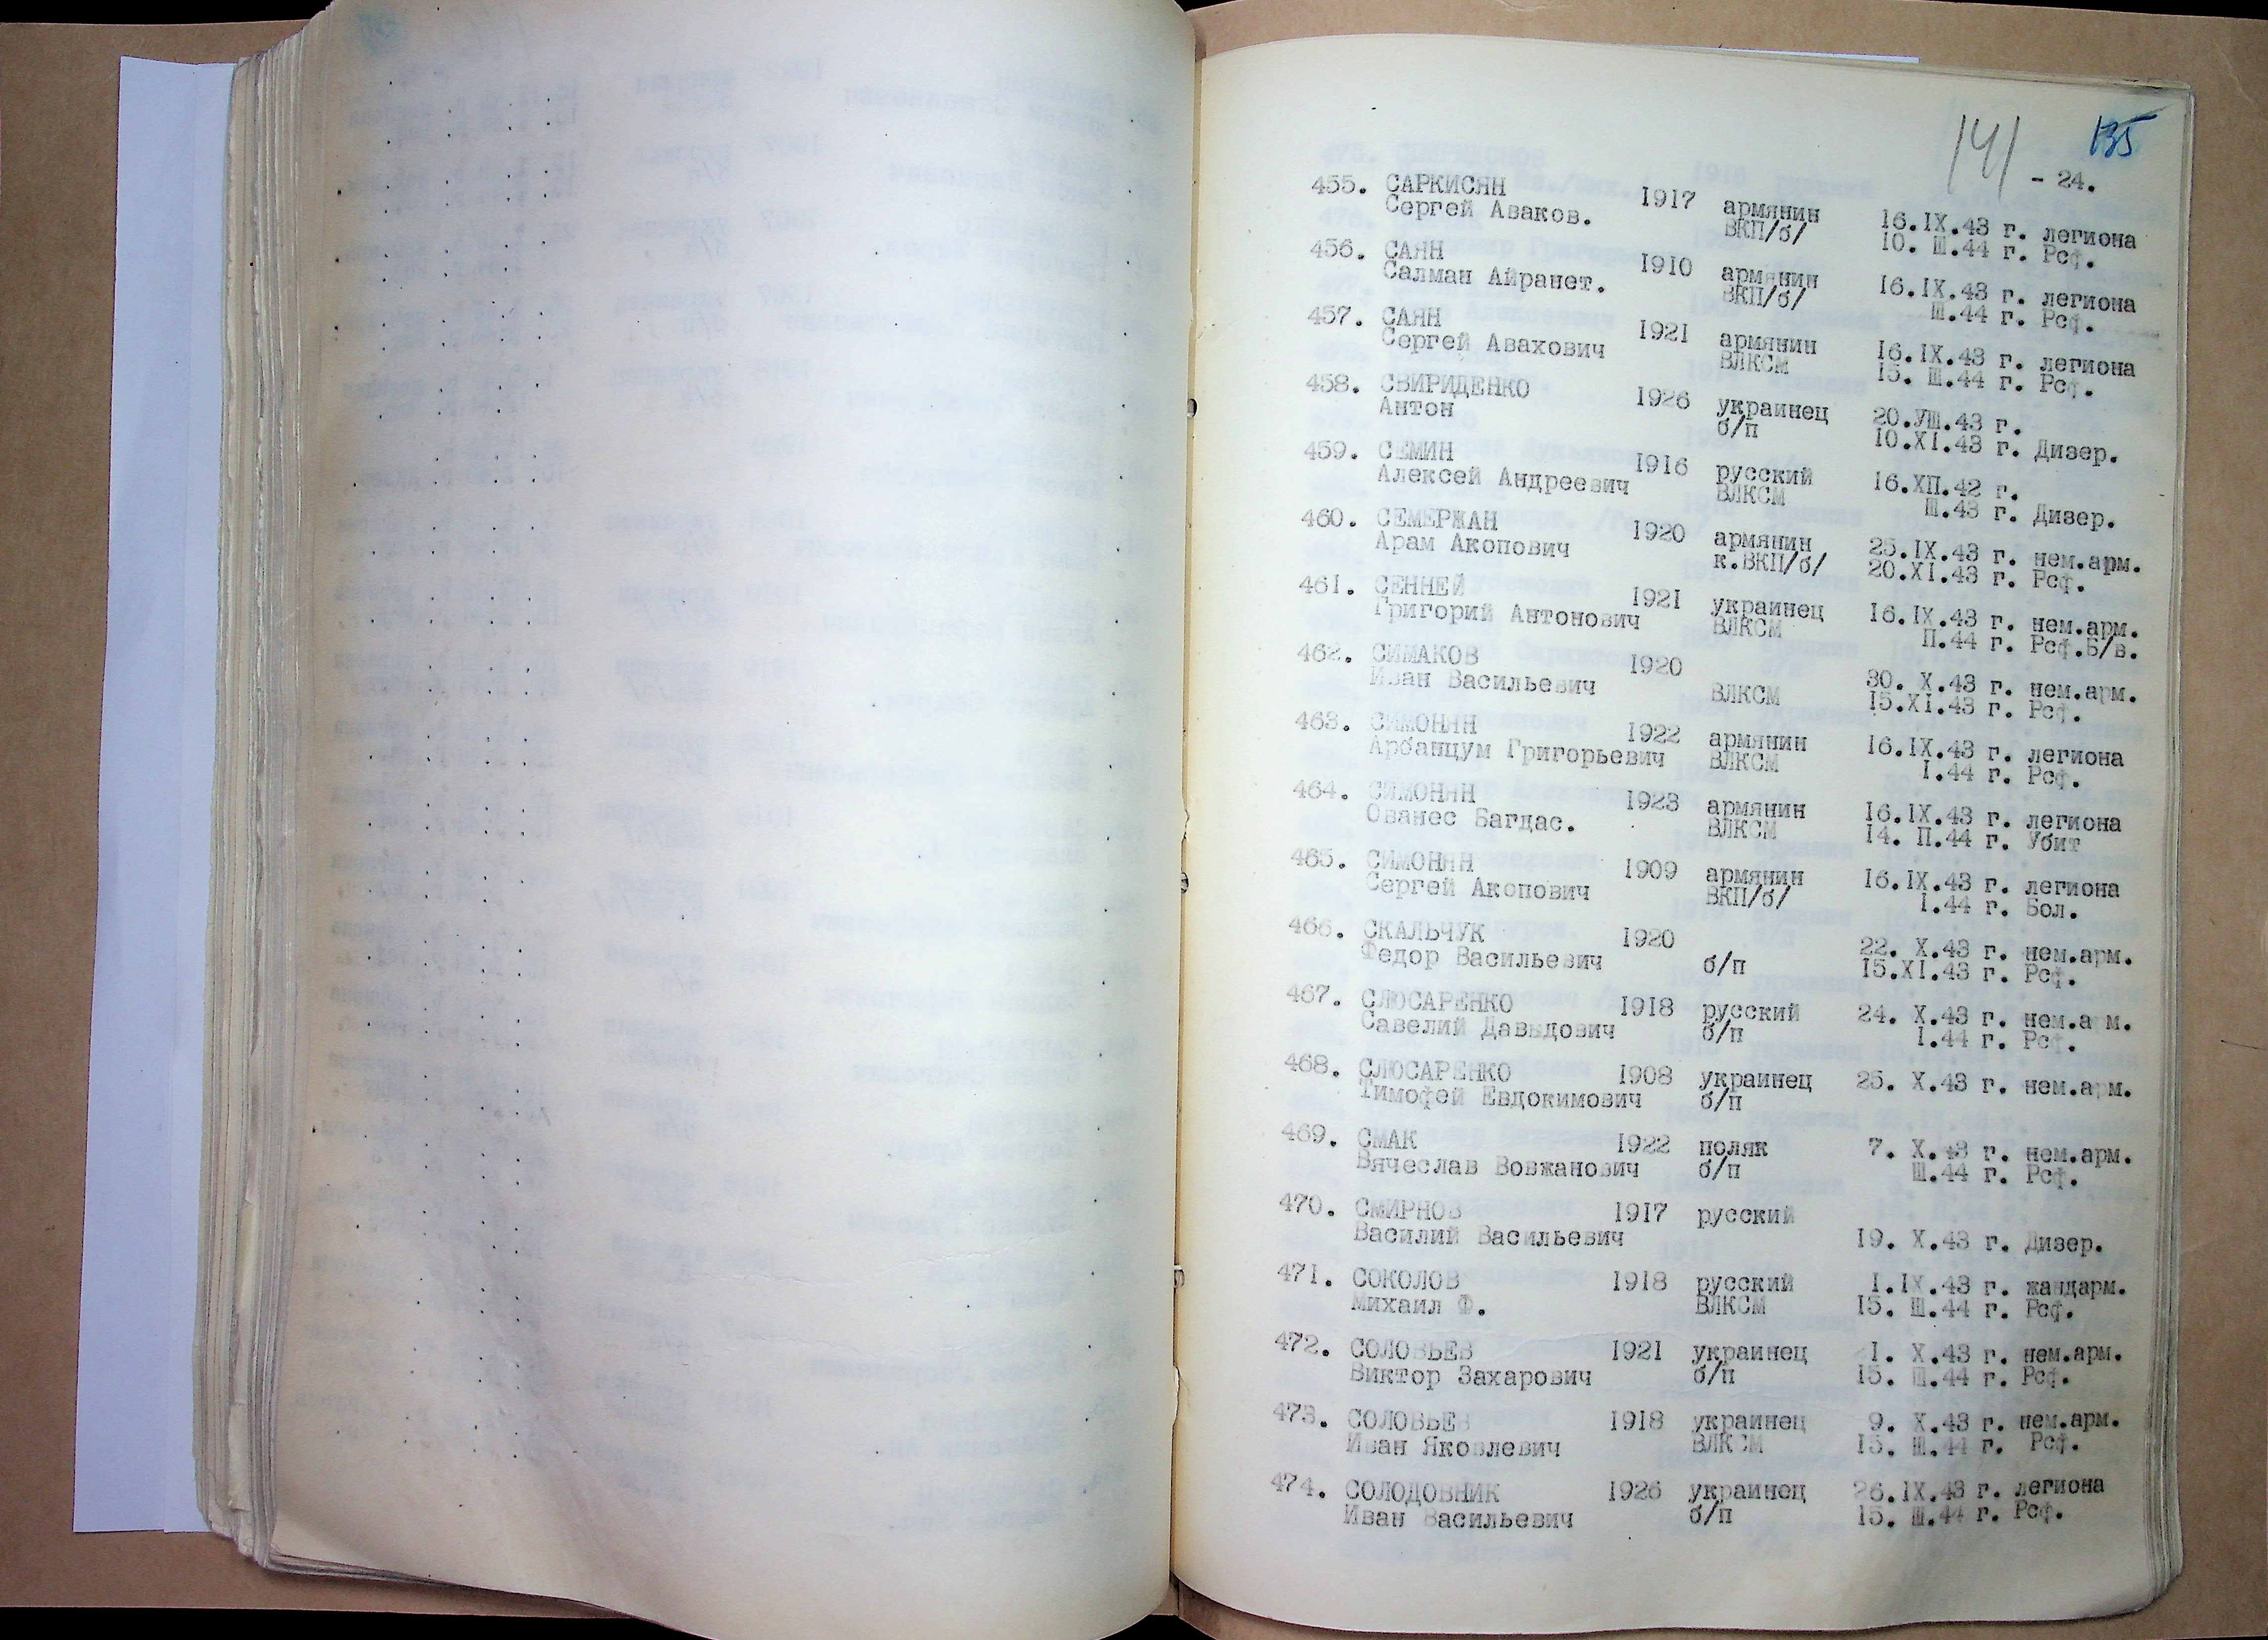 141 135
- 24.
455. САРКИСЯН 1917 армянин 16.IX.43 г. легиона
Сергей Аваков. ВКП/б/ 10. Ш.44 г. Рсф.
456. САЯН 1910 армянин 16.IX.43 г. легиона
Салман Айранет. ВКП/б/ Ш.44 г. Рсф.
457. САЯН 1921 армянин 16.IX.43 г. легиона
Сергей Авахович ВЛКСМ 15. Ш.44 г. Рсф.
458. СВИРИДЕНКО 1926 украинец 20.УШ.43 г.
Антон б/п 10.XI.43 г. Дизер.
459. СЕМИН 1916 русский 16.ХП.42 г.
Алексей Андреевич ВЛКСМ Ш.43 г. Дизер.
460. СЕМЕРЖАН 1920 армянин 25.IX.43 г. нем.арм.
Арам Акопович к.ВКП/б/ 20.XI.43 г. Рсф.
461. СЕННЕЙ 1921 украинец 16.IX.43 г. нем.арм.
Григорий Антонович ВЛКСМ П.44 г. Рсф.Б/в.
462. СИМАКОВ 1920 30. X.43 г. нем.арм.
Иван Васильевич ВЛКСМ 15.XI.43 г. Рсф.
463. СИМОНЯН 1922 армянин 16.IX.43 г. легиона
Арбанцум Григорьевич ВЛКСМ I.44 г. Рсф.
464. СИМОНЯН 1923 армянин 16.IX.43 г. легиона
Ованес Багдас. ВЛКСМ 14. П.44 г. Убит
465. СИМОНЯН 1909 армянин 16.IX.43 г. легиона
Сергей Акопович ВКП/б/ I.44 г. Бол.
466. СКАЛЬЧУК 1920 22. X.43 г. нем.арм.
Федор Васильевич б/п 15.XI.43 г. Рсф.
467. СЛЮСАРЕНКО 1918 русский 24. X.43 г. нем.а м.
Савелий Давыдович б/п I.44 г. Рсф.
468. СЛЮСАРЕНКО 1908 украинец 25. X.43 г. нем.арм.
Тимофей Евдокимович б/п
469. СМАК 1922 поляк 7. X.43 г. нем.арм.
Вячеслав Вовжанович б/п Ш.44 г. Рсф.
470. СМИРНОВ 1917 русский
Василий Васильевич 19. X.43 г. Дизер.
471. СОКОЛОВ 1918 русский I.IX.43 г. жандарм.
Михаил Ф. ВЛКСМ 15. Ш.44 г. Рсф.
472. СОЛОВЬЕВ 1921 украинец 1. X.43 г. нем.арм.
Виктор Захарович б/п 15. Ш.44 г. Рсф.
473. СОЛОВЬЕВ 1918 украинец 9. X.43 г. нем.арм.
Иван Яковлевич ВЛКСМ 15. Ш.44 г. Рсф.
474. СОЛОДОВНИК 1926 украинец 26.IX.43 г. легиона
Иван Васильевич б/п 15. Ш.44 г. Рсф.